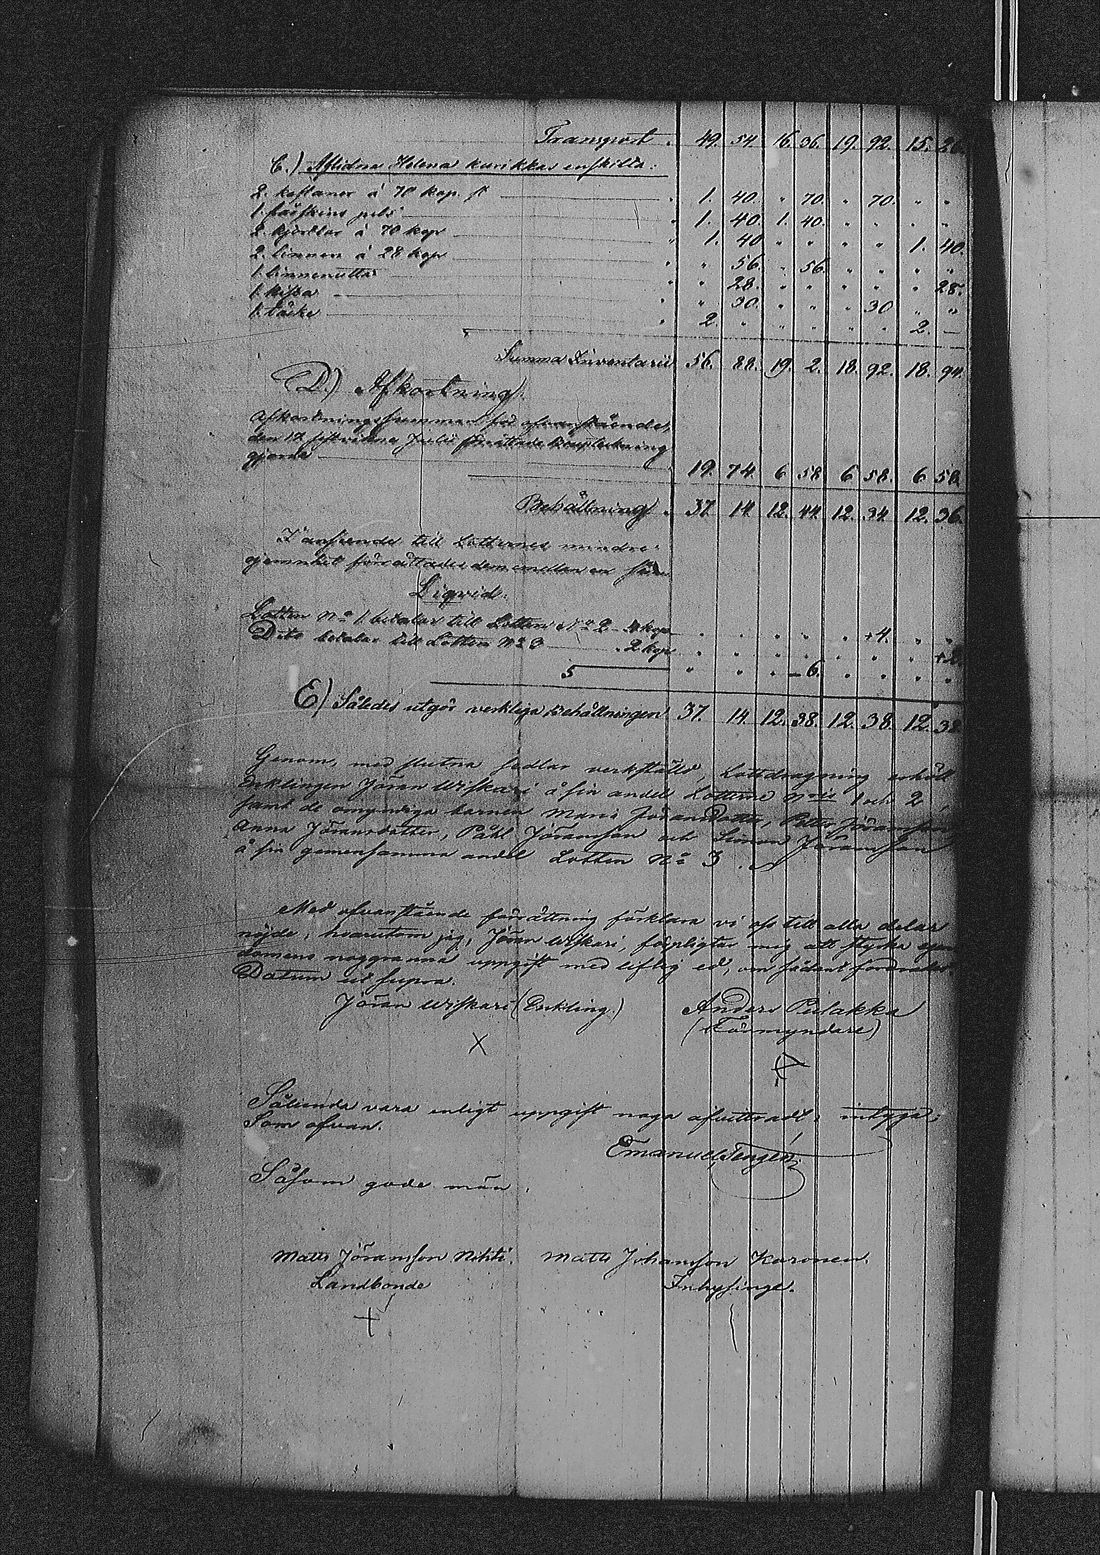 Transport . 49. 54. 16. 36. 19. 92. 15. 26.
C.) Aflidna Helena kurikkas enskilta:
2. kaftaner á 70 kop. st . 1. 40. " 70. " 70. " "
1. fårskins pels " 1. 40. 1. 40. " " " "
2. kjortlar á 70 kop " 1. 40 " " " " 1. 40.
2. linnen á 28 kop " " 56. " 56. " " " "
1. linnenätta " " 28. " " " " " 28.
1. kista " " 30. " " " 30 " "
1. täcke " 2. " " " " " 2. —
Summa Inventarii 56. 88. 19. 2. 18. 92. 18. 94.
D.) Afkortning.
Afkortningssumman för ofvanstående,
den 12 sistvikne Julii förrättade bouptekning
gjorde 19. 74. 6 58. 6 58. 6 58.
Behållning . 37. 14 12. 44. 12. 34. 12. 36.
I anseende till Lotternes mindre
jemnhet förrättades dememellan en sär
Liqvid.
Lotten No 1 betalar till Lotten No 2 - 4 kop . " " " " +4. " "
Dito betalar till Lotten No 3 " 2 kop " " " " " " " +2
S " " " – 6. " " " "
E) Således utgör verkliga Behållningen 37. 14. 12. 38. 12. 38. 12. 38
Genom, med slutna sedlar verkställd, Lottdragning erhöll
Enklingen Jöran Wiskari å sin andel Lotterne No 1 och 2
samt de omyndiga barnen Maria Jöransdotter, Petter Jöransson,
Anna Jöransdotter, Påhl Jöransson och Simon Jöransson
å sin gemensamma andel Lotten No 3.
Med ofvanstående förrättning förklara vi oss till alla delar
nöjde; hvarutom jag, Jöran Wiskari, förpligtar mig att styrka egen
domens noggranna uppgift med liflig ed, om sådant fordras.
Datum ut supra.
Jöran Wiskari (Enkling.) Anders Pulakka
(Förmyndare)
X
Sålunda vara enligt uppgift noga afvittradt; intyga;
Som ofvan.
Emanuel Tengén.
Såsom gode män
Matts Jöransson Nikiti. Matts Johansson Karonen.
Landbonde Inhysinge.
+